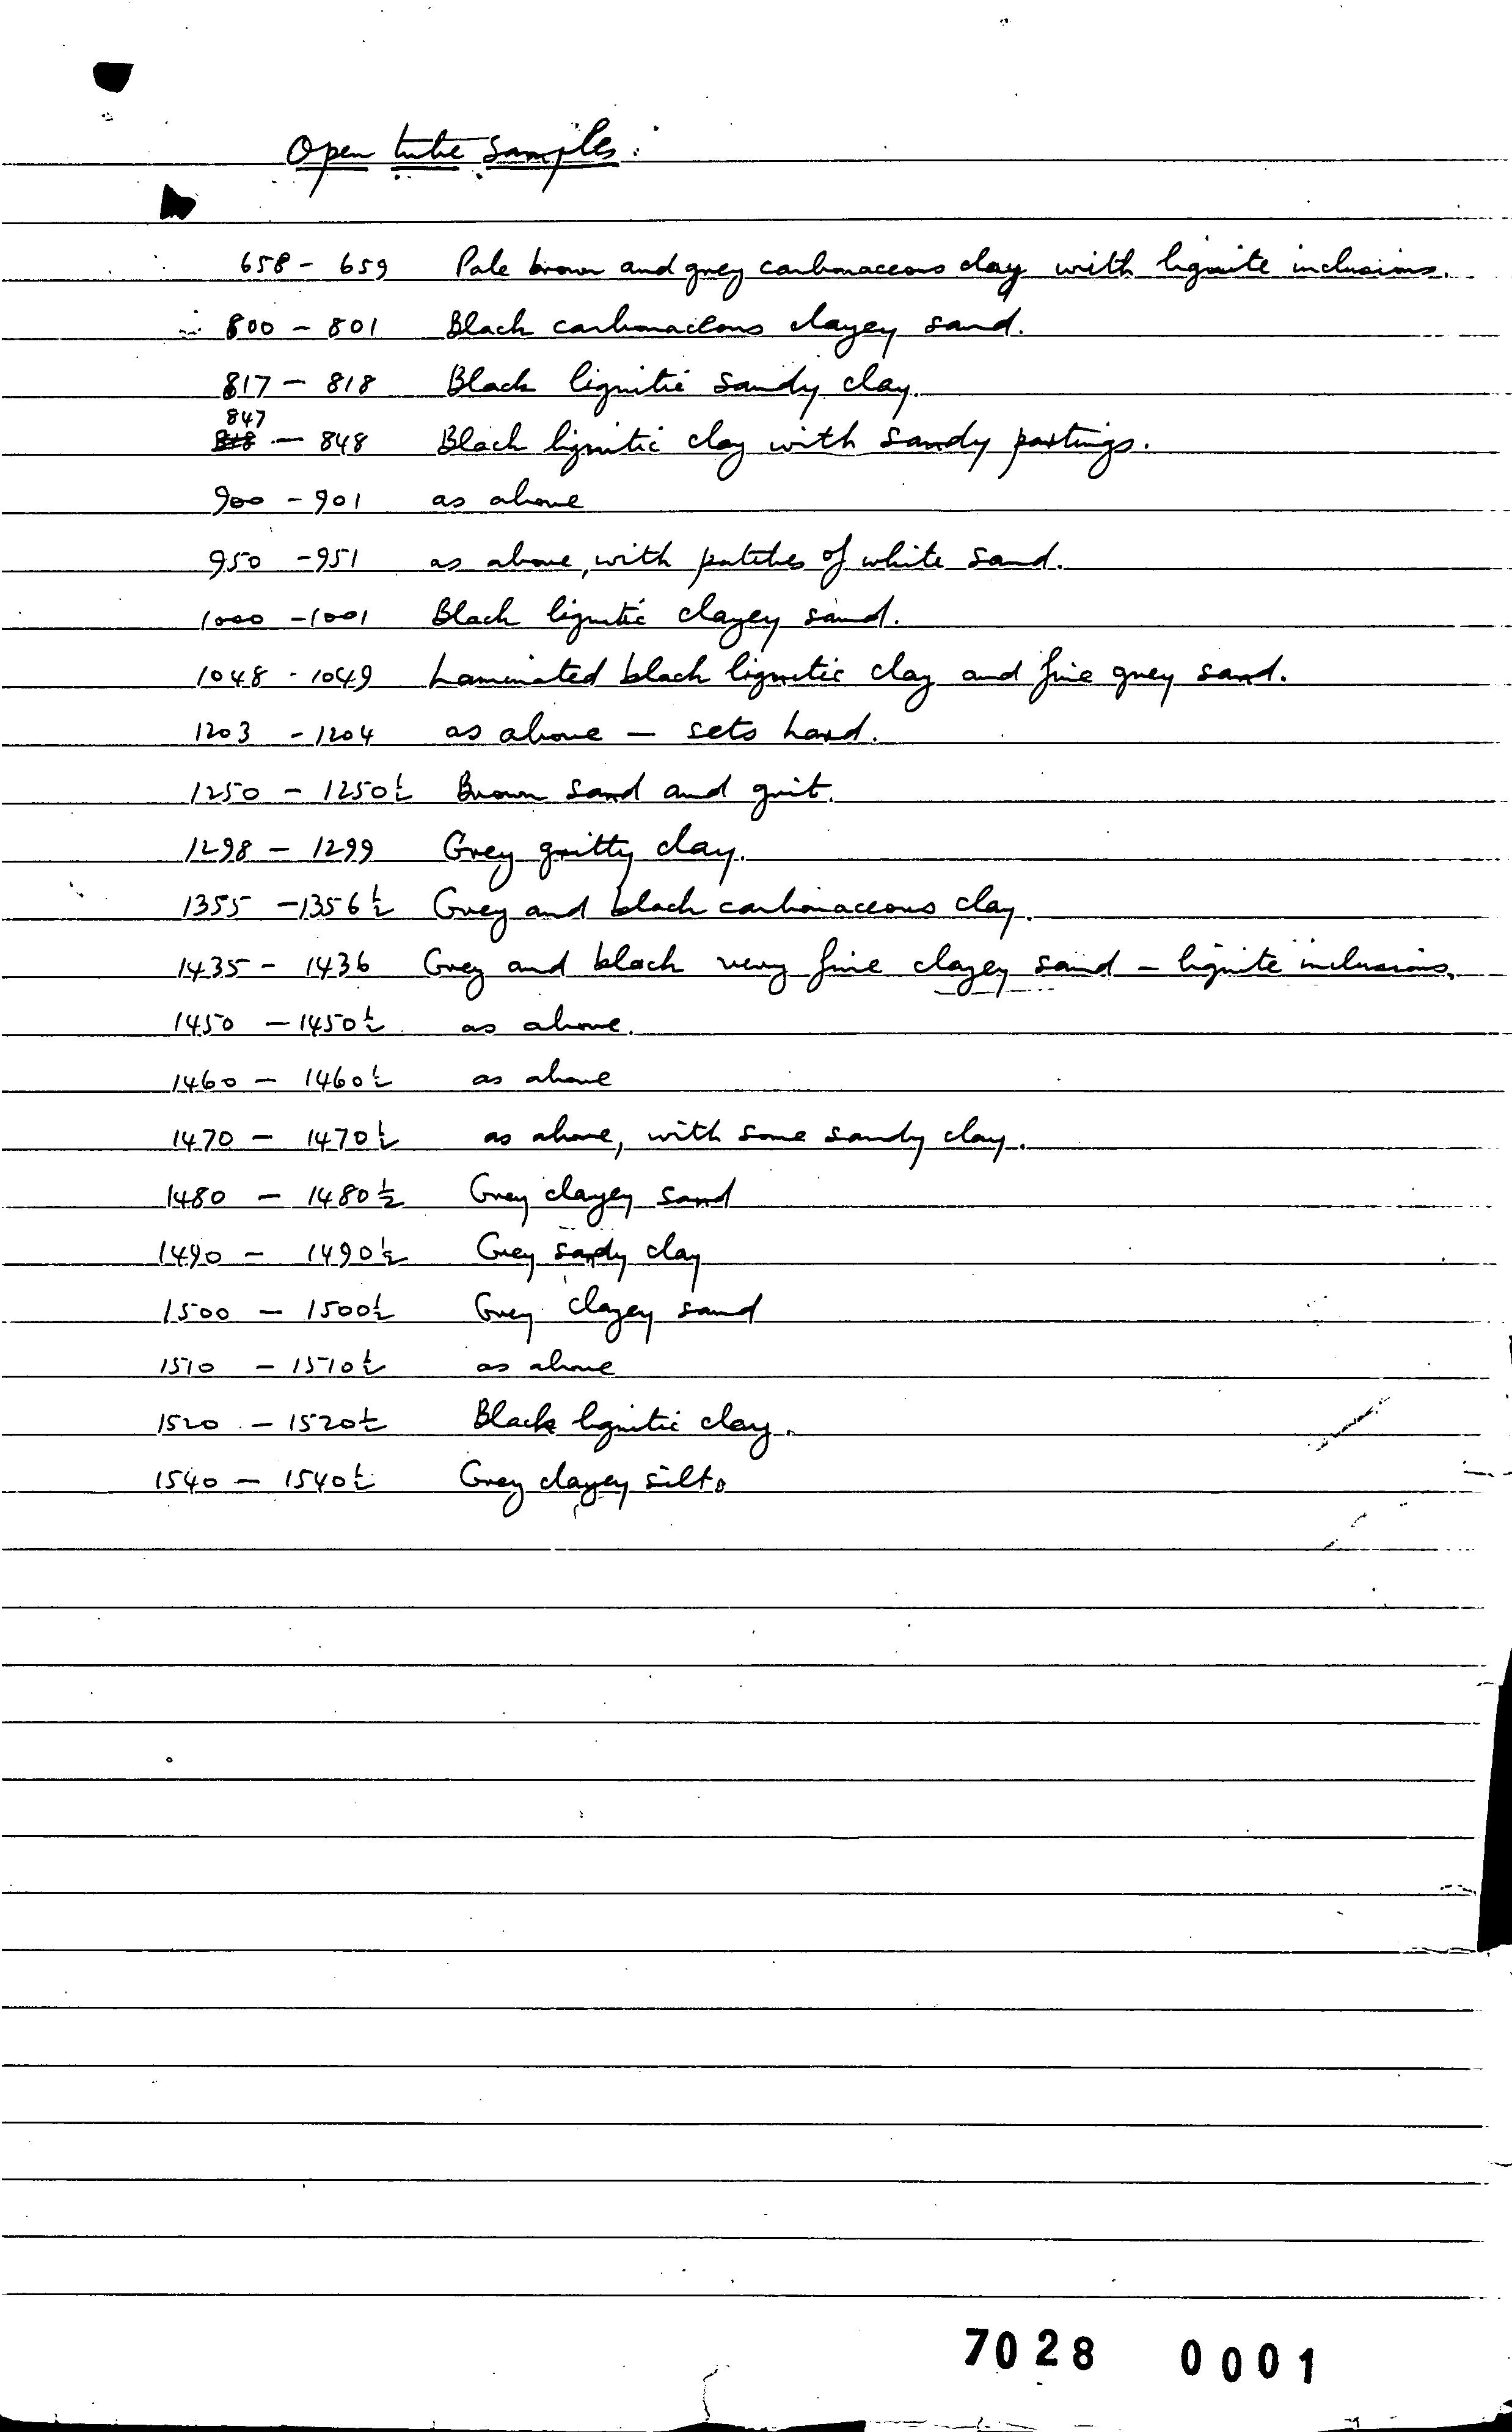 Open tube samples:
658 - 659 Pale brown and grey carbonaceous clay with lignite inclusions.
800 - 801 Black carbonaceous clayey sand.
817 - 818 Black lignitic sandy clay.
847
848 - 848 Black lignitic clay with sandy partings.
900 - 901 as above
950 - 951 as above, with patches of white sand.
1000 - 1001 Black lignitic clayey sand.
1048 - 1049 Laminated black lignitic clay and fine grey sand.
1203 - 1204 as above - sets hard.
1250 - 1250½ Brown sand and grit.
1298 - 1299 Grey gritty clay.
1355 - 1356½ Grey and black carbonaceous clay.
1435 - 1436 Grey and black very fine clayey sand - lignite inclusions.
1450 - 1450½ as above.
1460 - 1460½ as above
1470 - 1470½ as above, with some sandy clay.
1480 - 1480½ Grey clayey sand
1490 - 1490½ Grey sandy clay
1500 - 1500½ Grey clayey sand
1510 - 1510½ as above
1520 - 1520½ Black lignitic clay.
1540 - 1540½ Grey clayey silt.
7028 0001